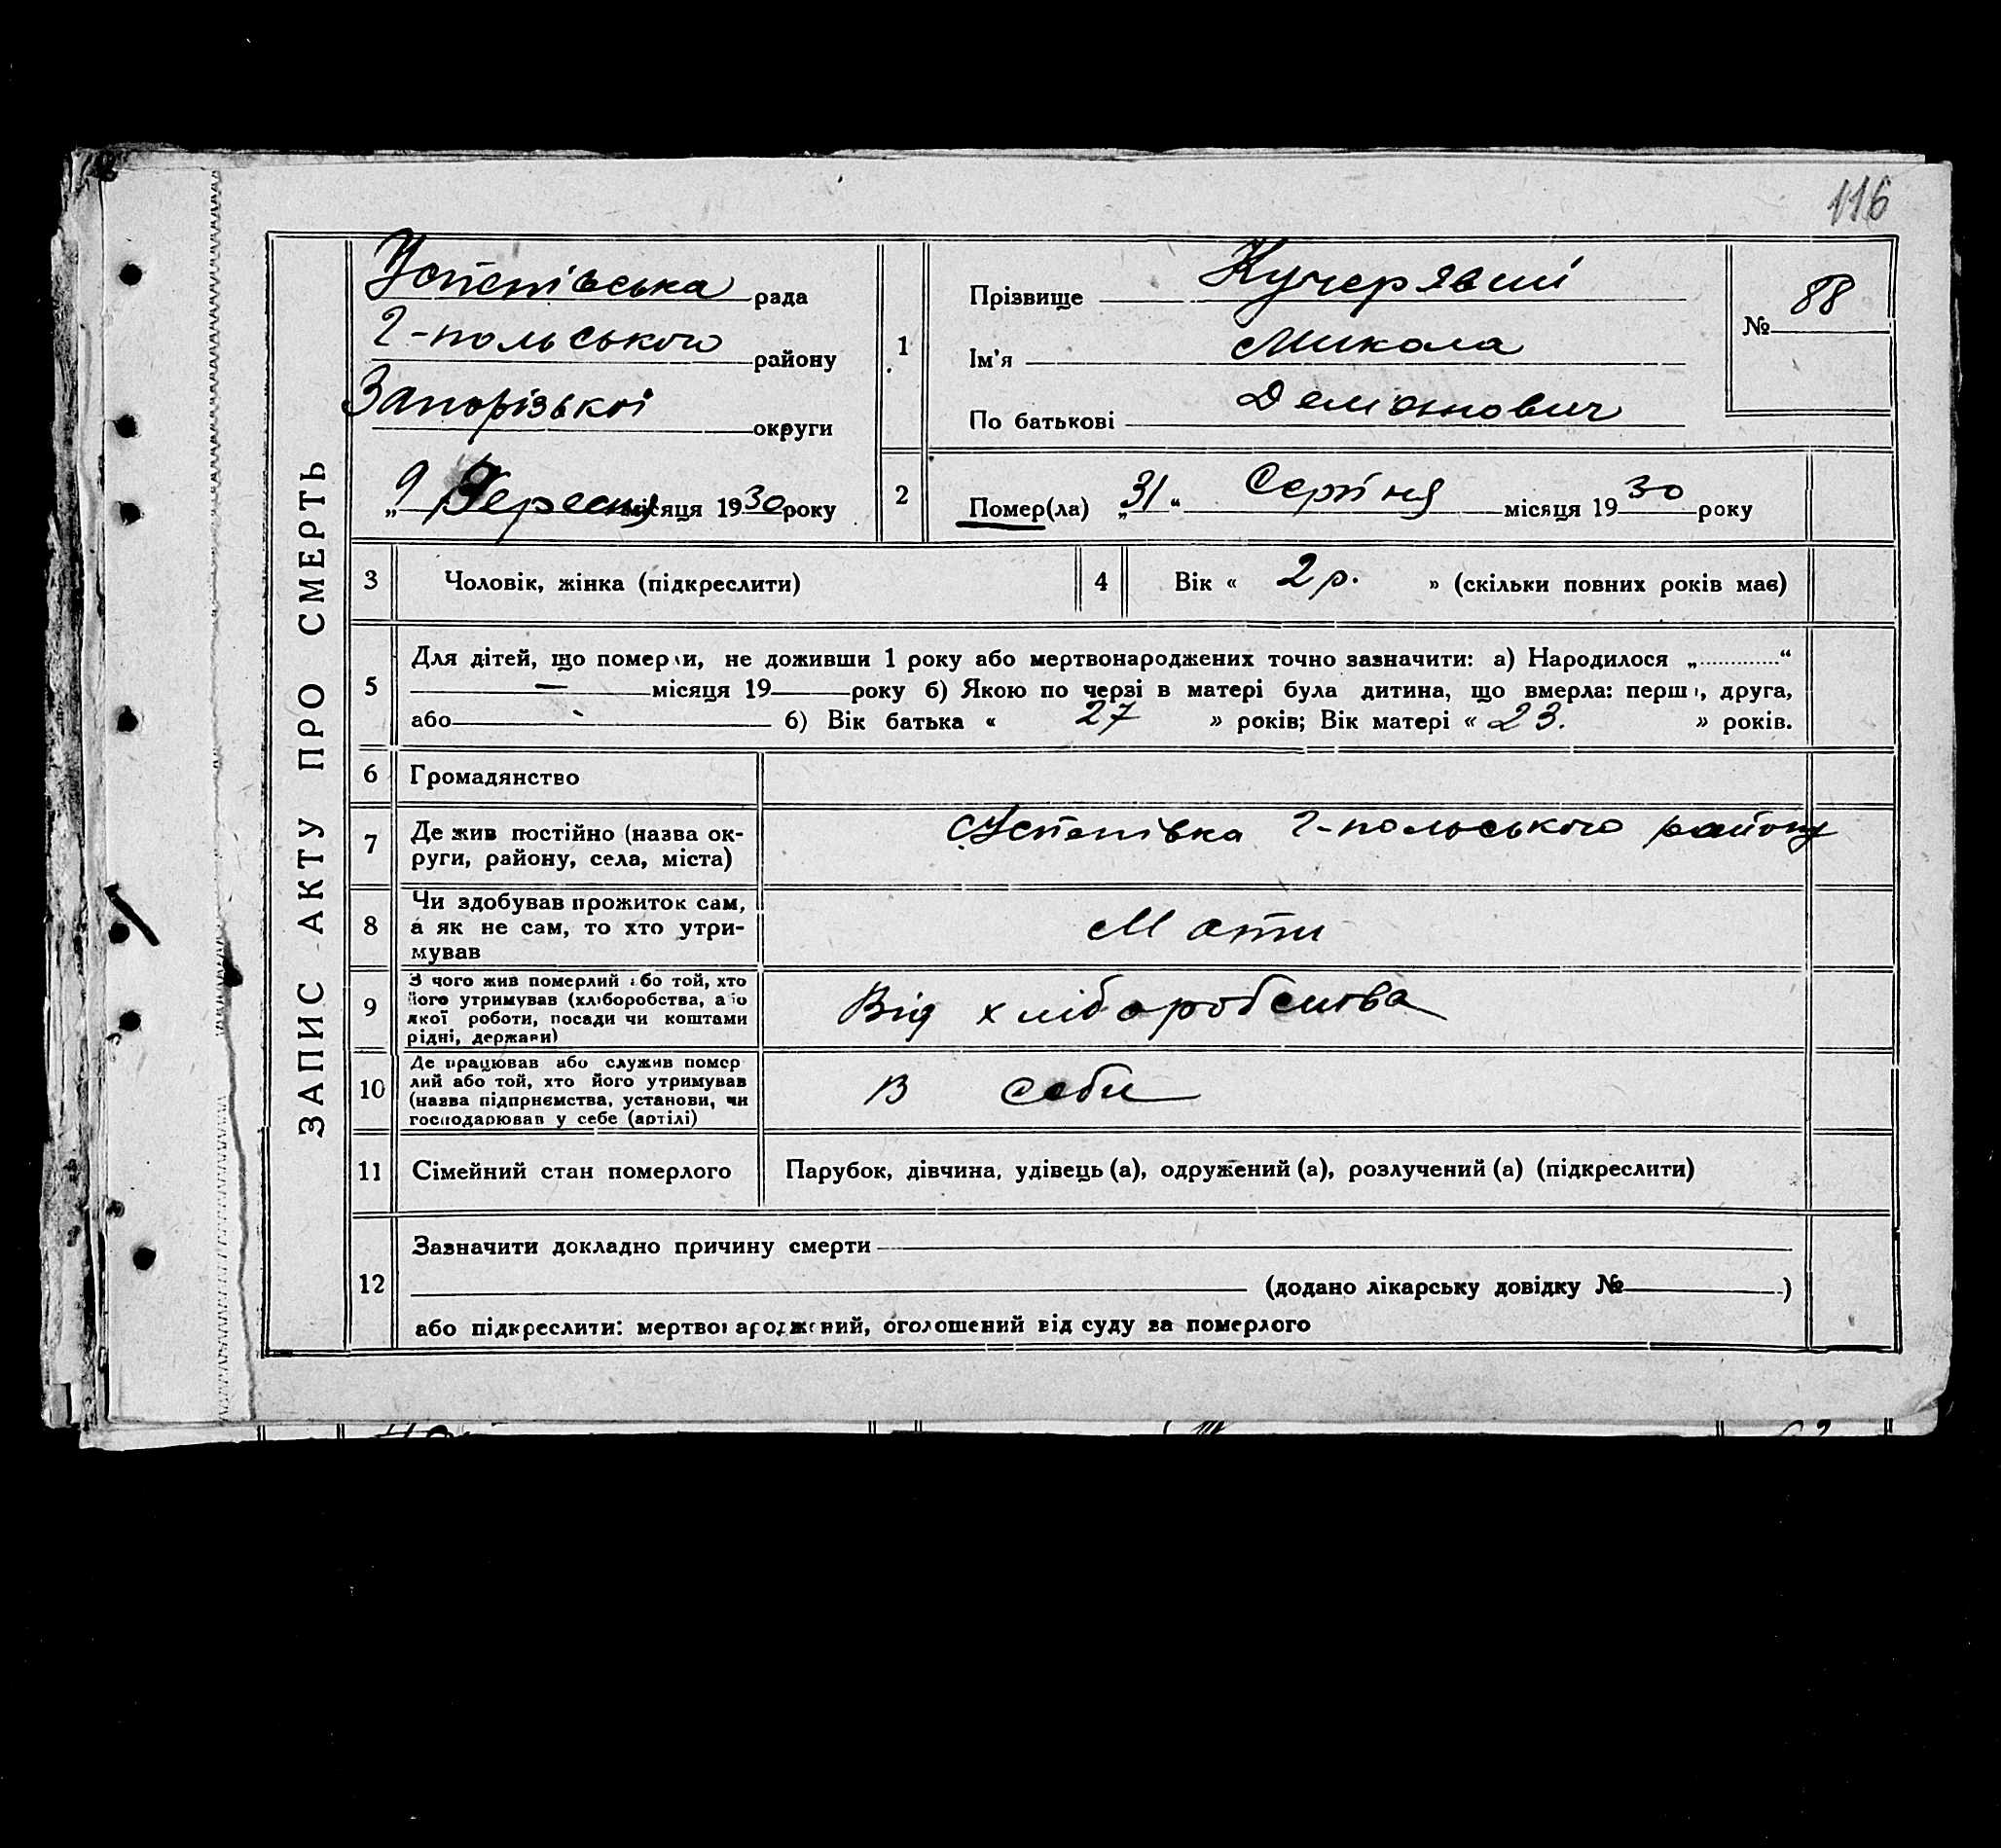 116
ЗАПИС АКТУ ПРО СМЕРТЬ
Успенівська рада
Г-польського району
Запорізької округи
„ 9 Вересня місяця 1930 року
1
Прізвище Кучерявий
Ім'я Микола
По батькові Дем'янович
№ 88
2
Помер(ла) „31“ Серпня місяця 1930 року
3 Чоловік, жінка (підкреслити)
4 Вік « 2 р. » (скільки повних років має)
5
Для дітей, що померли, не доживши 1 року або мертвонароджених точно зазначити: а) Народилося „............“
— місяця 19 року б) Якою по черзі в матері була дитина, що вмерла: перша, друга,
або - б) Вік батька « 27 » років; Вік матері « 23. » років.
6 Громадянство
7 Де жив постійно (назва ок-
руги, району, села, міста)
с.Успенівка Г-польського району
8 Чи здобував прожиток сам,
а як не сам, то хто утри-
мував
Мати
9 З чого жив померлий або той, хто
його утримував (хліборобства, або
якої роботи, посади чи коштами
рідні, держави)
Від хліборобства
10 Де працював або служив помер
лий або той, хто його утримував
(назва підприємства, установи, чи
господарював у себе (артілі)
В себи
11 Сімейний стан померлого
Парубок, дівчина, удівець (а), одружений (а), розлучений (а) (підкреслити)
12
Зазначити докладно причину смерти
(додано лікарську довідку № )
або підкреслити: мертвонароджений, оголошений від суду за померлого